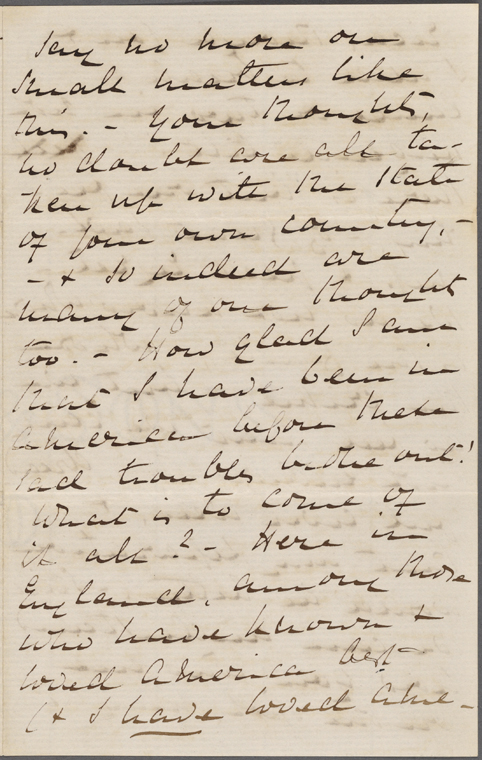 say no more on
small matters like
this. - Your thoughts,
no doubt are all ta-
ken up with the State
of your own country, -
- & so indeed are
many of our thoughts
too. - How glad I am
that I have been in
America before these
sad troubles broke out!
What is to come of
it all? - Here in
England, among those
who have known &
loved America best
(& I have loved Ame-